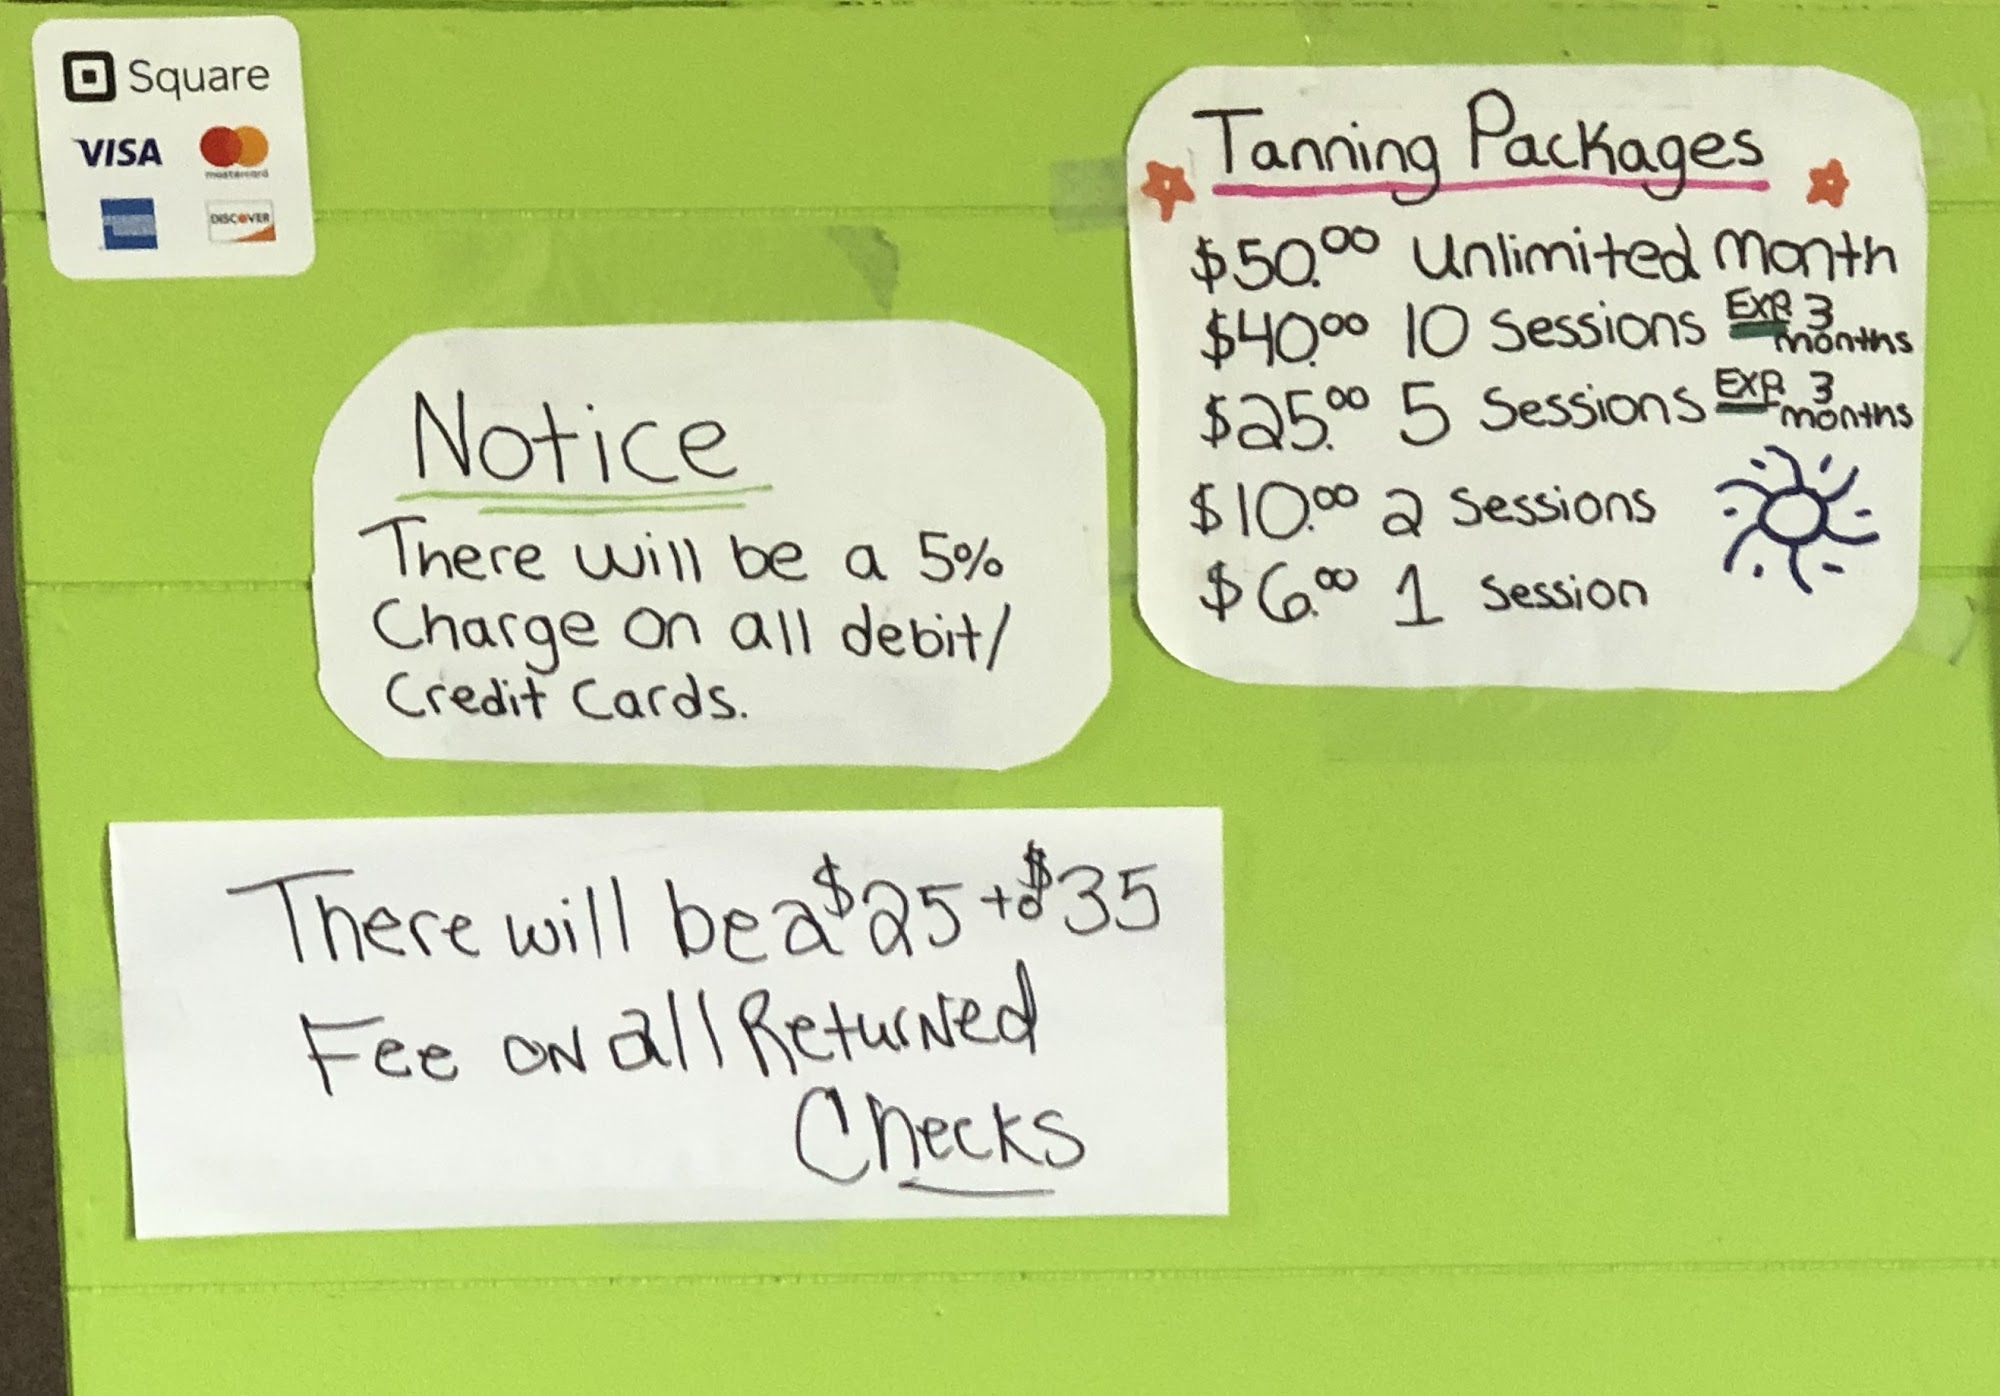 Square
VISA
mastercard
DISCOVER
Tanning Packages
$50.00 Unlimited Month
$40.00 10 Sessions Exp. 3 months
$25.00 5 Sessions Exp. 3 months
$10.00 2 Sessions
$6.00 1 Session
Notice
There will be a 5%
Charge on all debit/
Credit Cards.
There will be a $25 to $35
Fee on all Returned
Checks